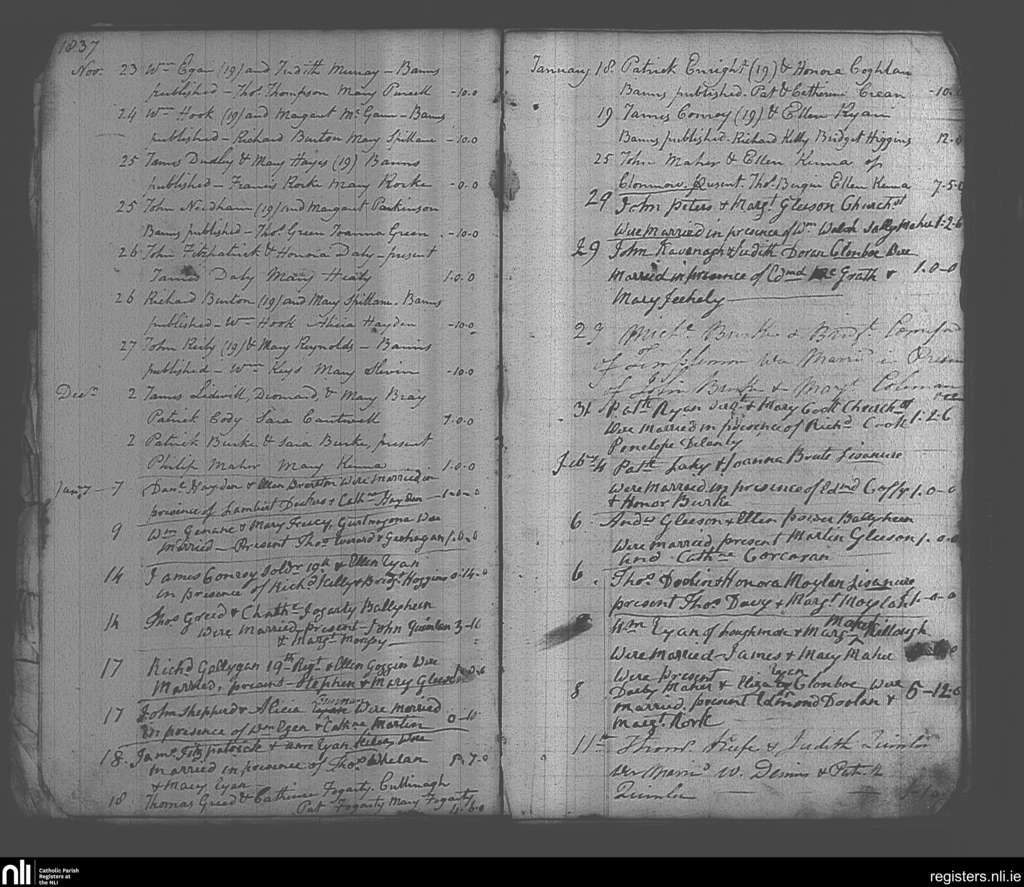 1837
Nov. 23 Wm Egan (19) and Judith Murray - Banns
published - Thos. Thompson Mary Purcell -10.0
24 Wm Hook (19) and Margaret McGann - Banns
published - Richard Burton Mary Spillane -10.0
25 James Dudley & Mary Hayes (19) Banns
published - Francis Rorke Mary Rorke -0.0
25 John Needham (19) and Margaret Parkinson
Banns published - Thos Green Joanna Green -10.0
26 John Fitzpatrick & Honora Daly - present
James Daly Mary Heaty 1.0.0
26 Richard Burton (19) and Mary Spillane. Banns
published - Wm Hook Alicia Hayden -10.0
27 John Kirby (19) & Mary Reynolds - Banns
published - Wm Keys Mary Slevin -10.0
Decr. 2 James Lidwill, Dromard, & Mary Bray
Patrick Cody Sara Cantwell 7.0.0
2 Patrick Burke & Sara Burke, present
Philip Maher Mary Kenna 1.0.0
Jany 7 Danl Hayden & Ellen Brereton Were Married in
presence of Lambert & Cathne Hayden 1-0-0
9 Wm & Mary Gurtnagona Were
Married - Present Thos & Geohagan 1.0.0
14 James Conroy Soldr 19th & Ellen Ryan
in presence of Richd Kelly & Bridgt Higgins 0.14.0
14 Thos Greed & Cathe Fogarty Ballyheen
Were Married present John Quinlan 3-10
& Margt
17 Richd Gallygan 19th Regt & Ellen Goggin Were
Married, present - Stephen & Mary
17 John Shepperd & Alicia Were Married
in presence of Wm Egan & Cathne Martin 0-10
18 Jams Fitzpatrick & Ann Ryan Were
Married in presence of Thos Whelan 5.7.0
& Mary Ryan
18 Thomas Greed & Catherine Fogarty. Cullinagh
Pat Fogarty Mary Fogarty 4.6.0
January 18. Patrick Enright (19) & Honora Coghlan
Banns published. Pat & Catherine Crean -10.0
19 James Conroy (19) & Ellen Ryan
Banns published. Richard Kelly Bridget Higgins 12.0
25 John Maher & Ellen Kenna of
Clonmore. Present. Thos. Bergin Ellen Kenna 7.5.0
29 John Peters & Margt Gleeson Churchst
Were Married in presence of Wm Walsh Sally Maher 1-2-6
29 John Kavanagh & Judith Doran Clonboe Were
Married in presence of Edmd McGrath & 1.0-0
Mary Feehely
29 Michl Burke & Bridgt
of Were Married in
of John Burke & Margt Coleman
31 Patk Ryan & Mary Cook Church st
Were Married in presence of Richd Cook 1-2-6
Penelope Delanty
Feby 4 Patk Lahy & Joanna Brute Lisanure
Were Married in presence of Edmd 1-0-0
& Honor Burke
6. Andw Gleeson & Ellen Power Ballyheen
Were married, present Martin Gleeson 1.0-0
and Cathne Corcoran
6. Thos. Dobin & Honora Moylan Lisanure
present Thos Davy & Margt Moylan 1-0-0
8 Wm Ryan of Loughmore & Margt Maher Killough
Were Married - James & Mary Maher
Were Present
8 Darby Maher & Eliza Ryan Clonboe Were 5-12-6
married, present Edmond Doolan &
Margt. Rork
11th Thoms Keefe & Judith Quinlan
were Marrid W. Dennis & Pat. &
Quinlan
nli Catholic Parish
Registers at
the NLI
registers.nli.ie